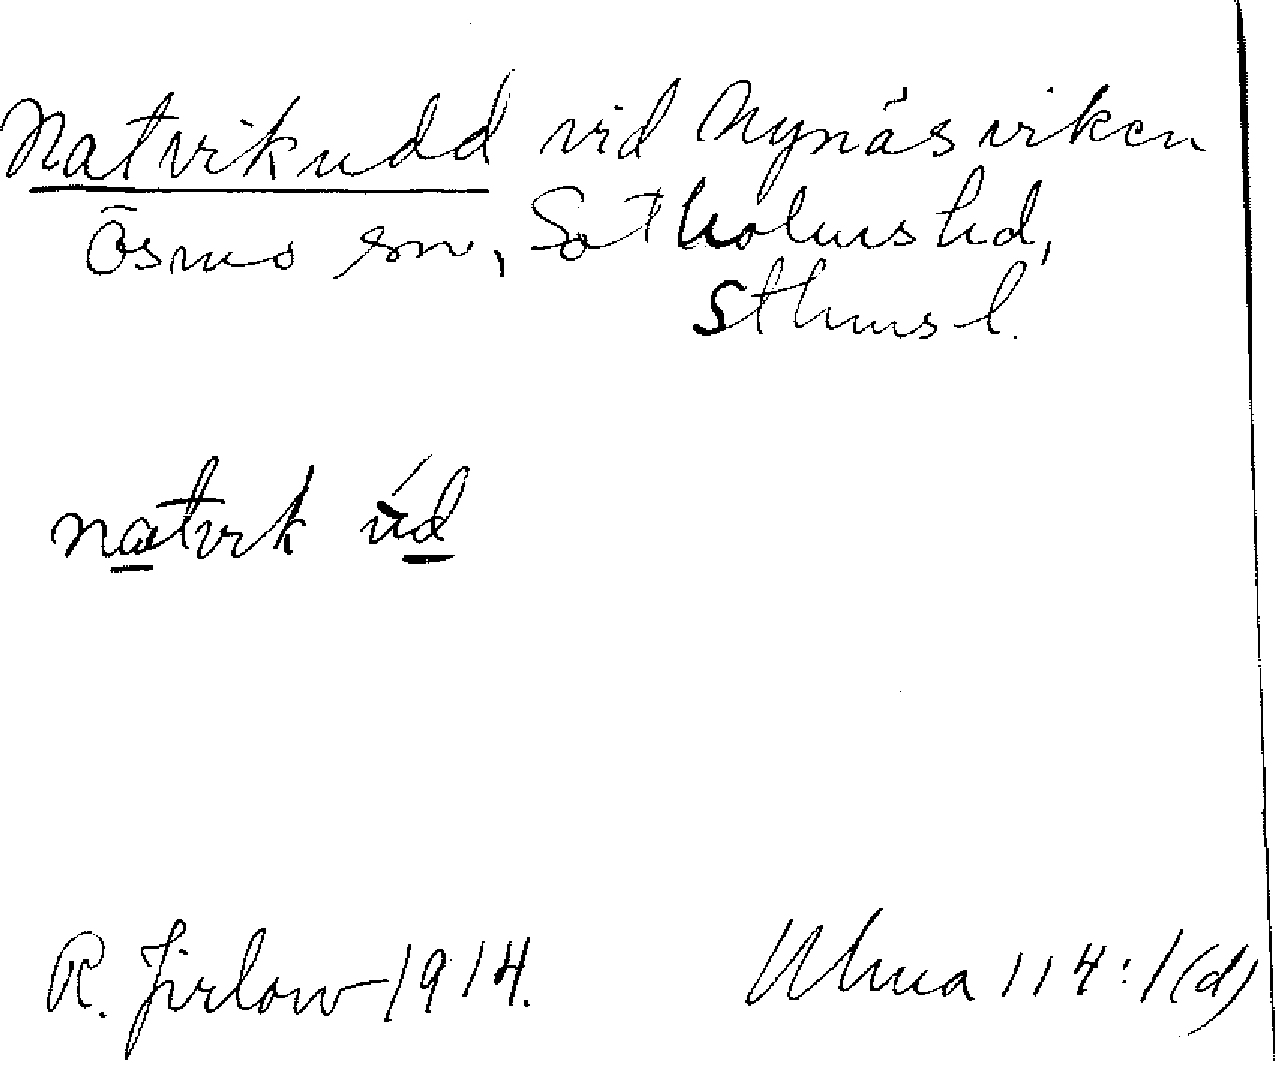 Natvikudd vid Nynäsviken
Ösmo sn, Sotholms hd,
Sthms l.
natvik ùd
R. Jirlow 1914.
Ulma 114:1(d)